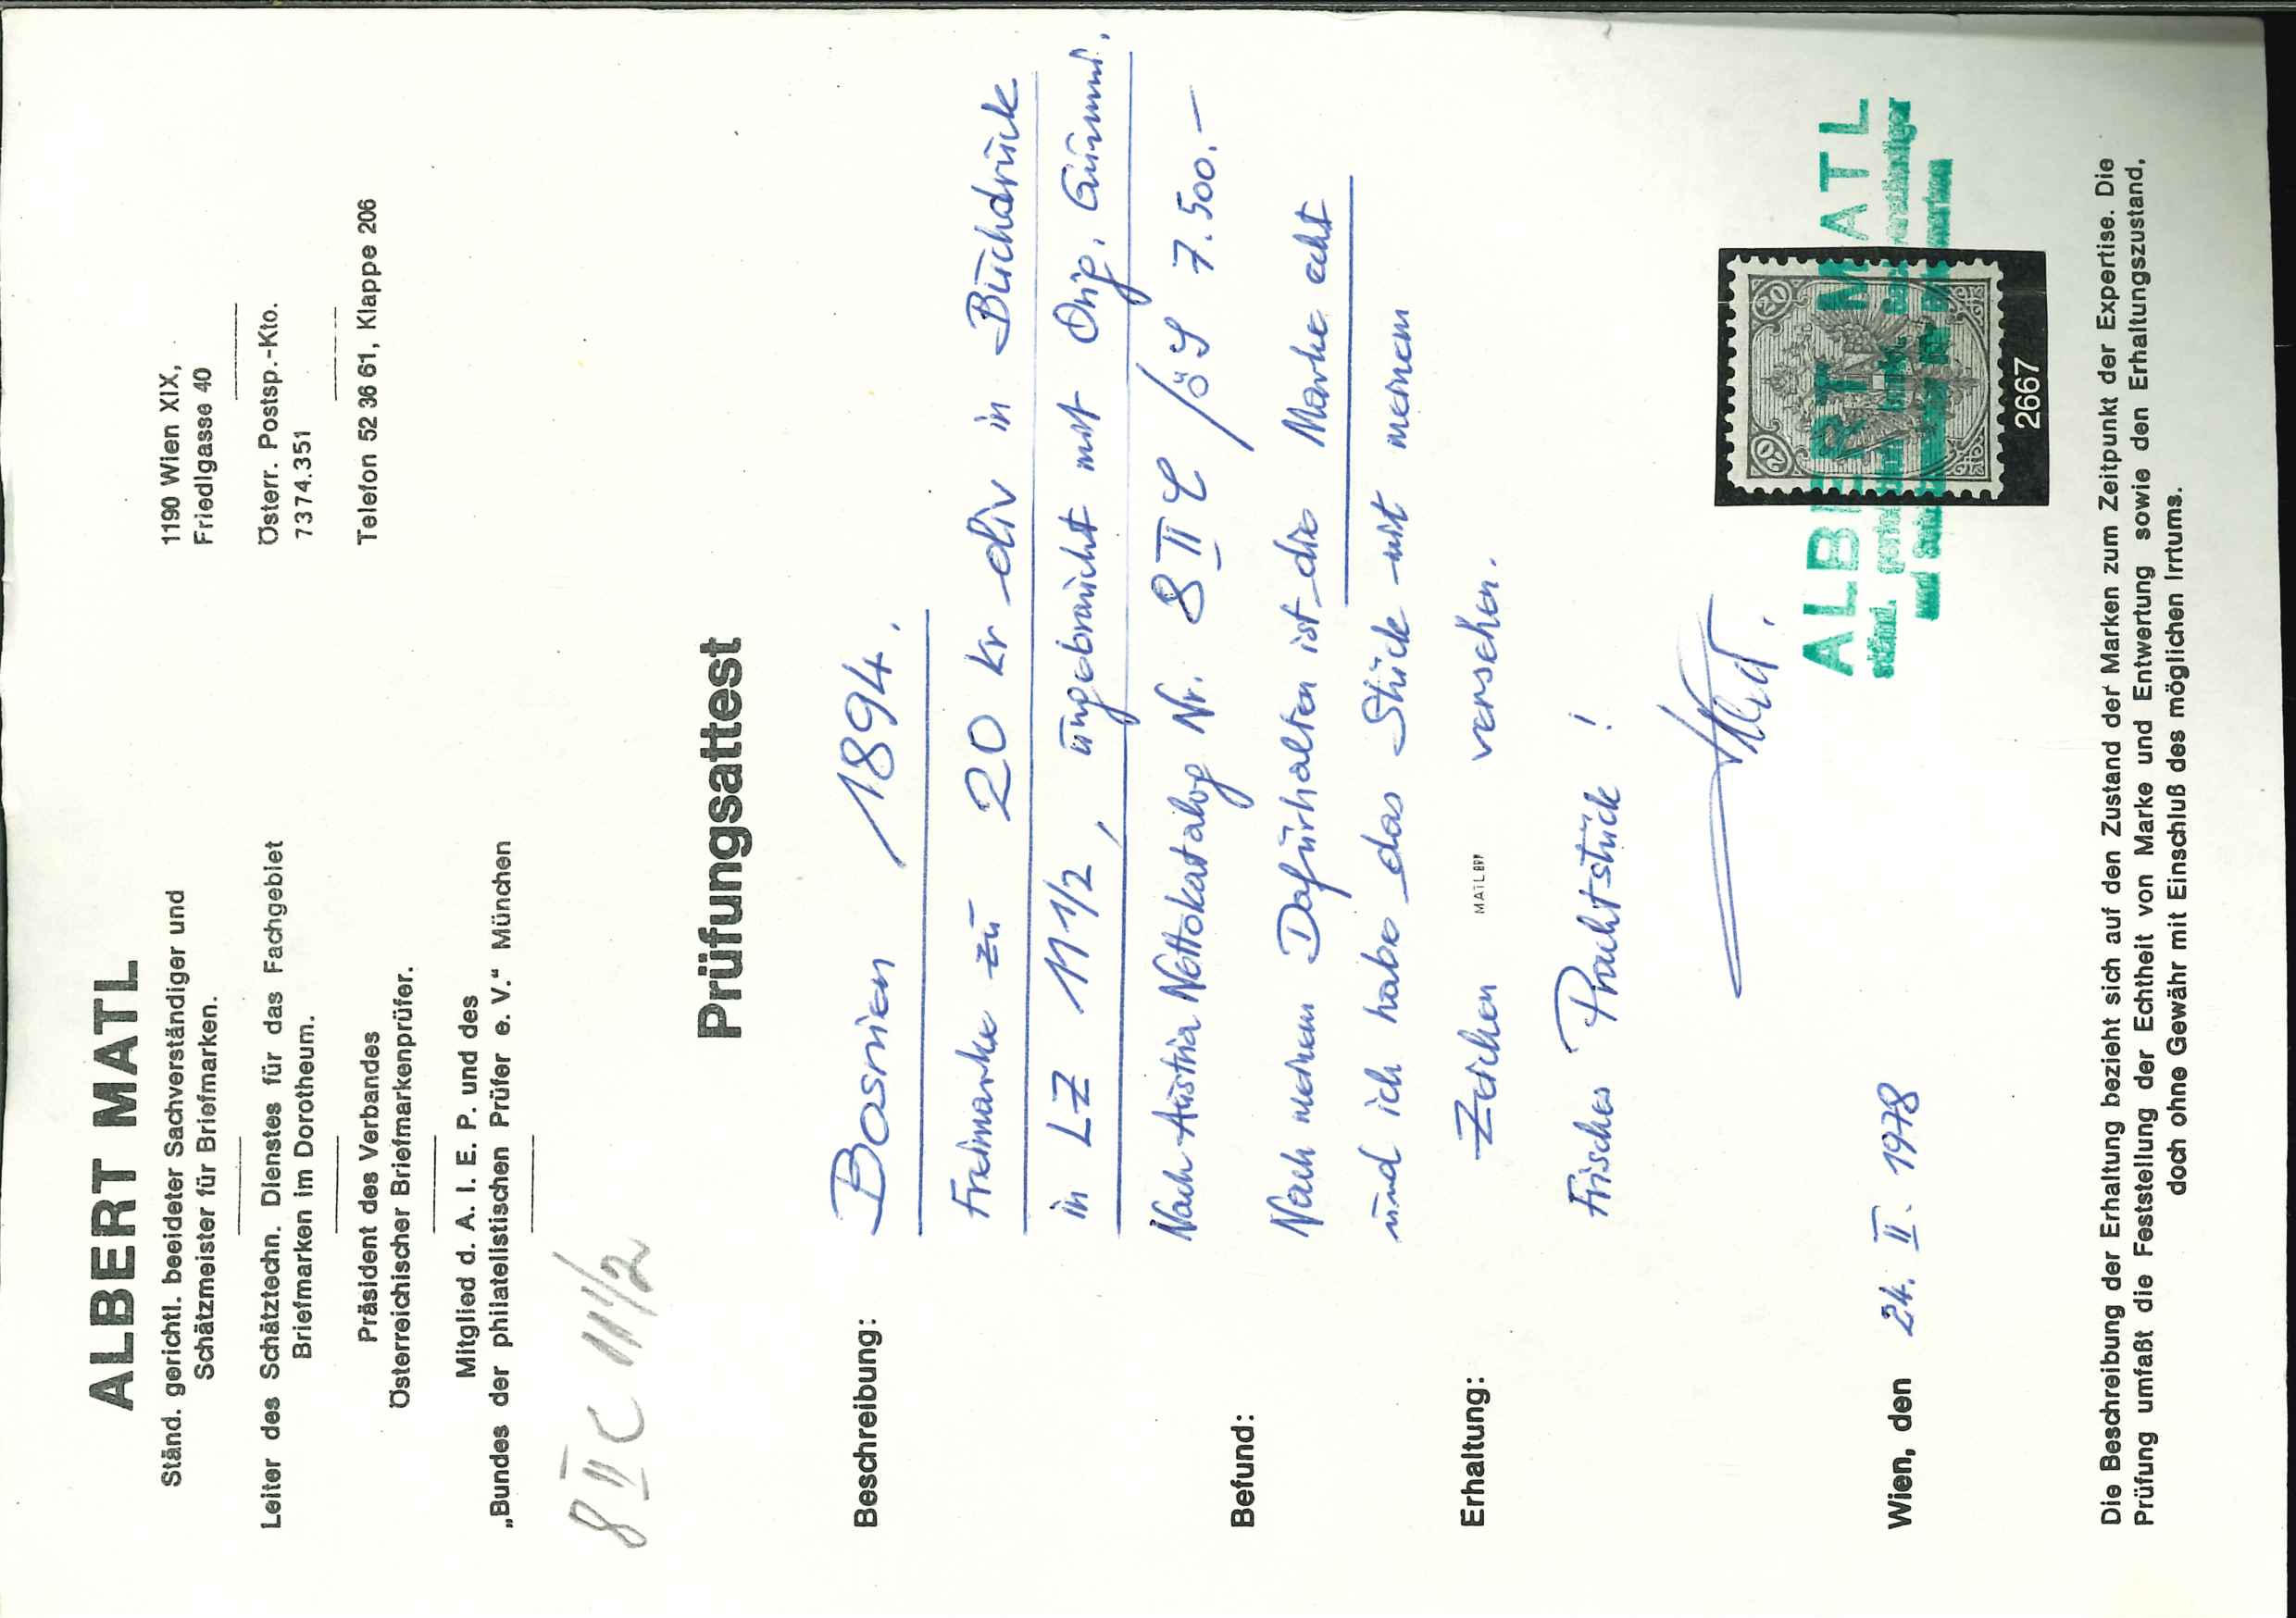 ALBERT MATL
Ständ. gerichtl. beeideter Sachverständiger und
Schätzmeister für Briefmarken.
Leiter des Schätztechn. Dienstes für das Fachgebiet
Briefmarken im Dorotheum.
Präsident des Verbandes
Österreichischer Briefmarkenprüfer.
Mitglied d. A. I. E. P. und des
„Bundes der philatelistischen Prüfer e. V." München
1190 Wien XIX,
Friedlgasse 40
Österr. Postsp.-Kto.
7374.351
Telefon 52 36 61, Klappe 206
8 II C 11 1/2
Prüfungsattest
Beschreibung:
Bosnien 1894.
Freimarke zu 20 kr oliv in Buchdruck
in LZ 11 1/2, ungebraucht mit Orig. Gummi.
Nach Austria Nettokatalog Nr. 8 II C / öS 7.500.-
Befund:
Nach meinem Dafürhalten ist die Marke echt
und ich habe das Stück mit meinem
Zeichen MATL BPP versehen.
Erhaltung:
Frisches Prachtstück!
Matl.
Wien, den 24. II. 1978
20 20
2667
ALBERT MATL
ständ. gerichtl. beeid. Sachverständiger
und Schätzmeister für Briefmarken
Die Beschreibung der Erhaltung bezieht sich auf den Zustand der Marken zum Zeitpunkt der Expertise. Die
Prüfung umfaßt die Feststellung der Echtheit von Marke und Entwertung sowie den Erhaltungszustand,
doch ohne Gewähr mit Einschluß des möglichen Irrtums.